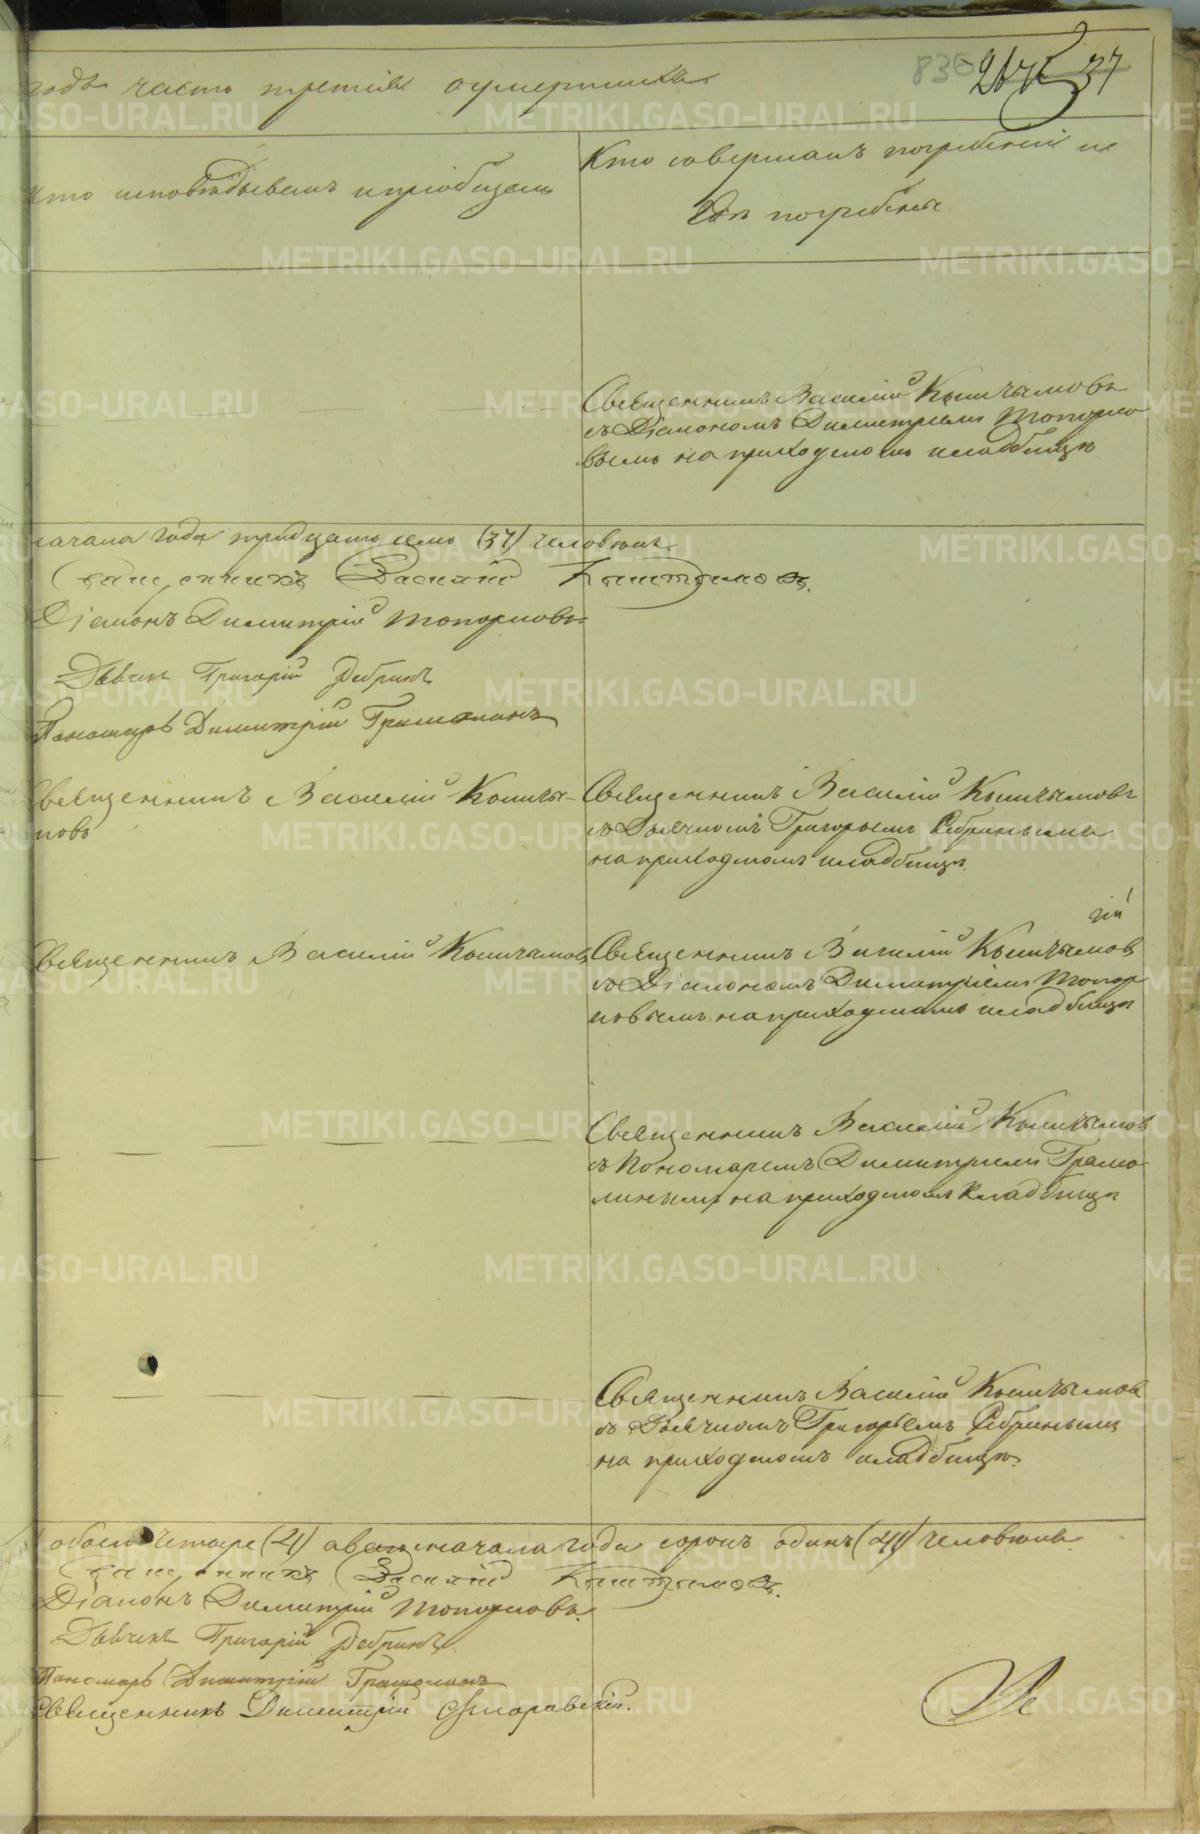 годъ часть третія о умершихъ
836 37
Кто исповѣдывалъ и пріобщалъ
Кто совершалъ погребеніе и
гдѣ погребены
Священникъ Василій Кыштымовъ
съ Діакономъ Димитріемъ Топорко-
вымъ на приходскомъ кладбищѣ
начала года тридцать семь (37) человѣкъ.
Священникъ Василій Кыштымовъ.
Діаконъ Димитрій Топорковъ
Дьячекъ Григорій Ребринъ
Пономарь Димитрій Грамолинъ
Священникъ Василій Кышты-
мовъ
Священникъ Василій Кыштымовъ
съ Дьячкомъ Григорьемъ Ребринымъ
на приходскомъ кладбищѣ.
Священникъ Василій Кыштымовъ
Священникъ Василій Кыштымов
съ Діакономъ Димитріемъ Топор
ковымъ на приходскомъ кладбищѣ
Священникъ Василій Кыштымов
съ Пономаремъ Димитріемъ Грамо
линымъ на приходскомъ кладбищѣ
Священникъ Василій Кыштымов
съ Дьячкомъ Григорьемъ Ребринымъ
на приходскомъ кладбищѣ.
обоего четыре (4) а всего сначала года сорокъ одинъ (41) человѣкъ.
Священникъ Василій Кыштымовъ.
Діаконъ Димитрій Топорковъ.
Дьячекъ Григорій Ребринъ.
Пономарь Димитрій Грамолинъ
Священникъ Димитрій
METRIKI.GASO-URAL.RU